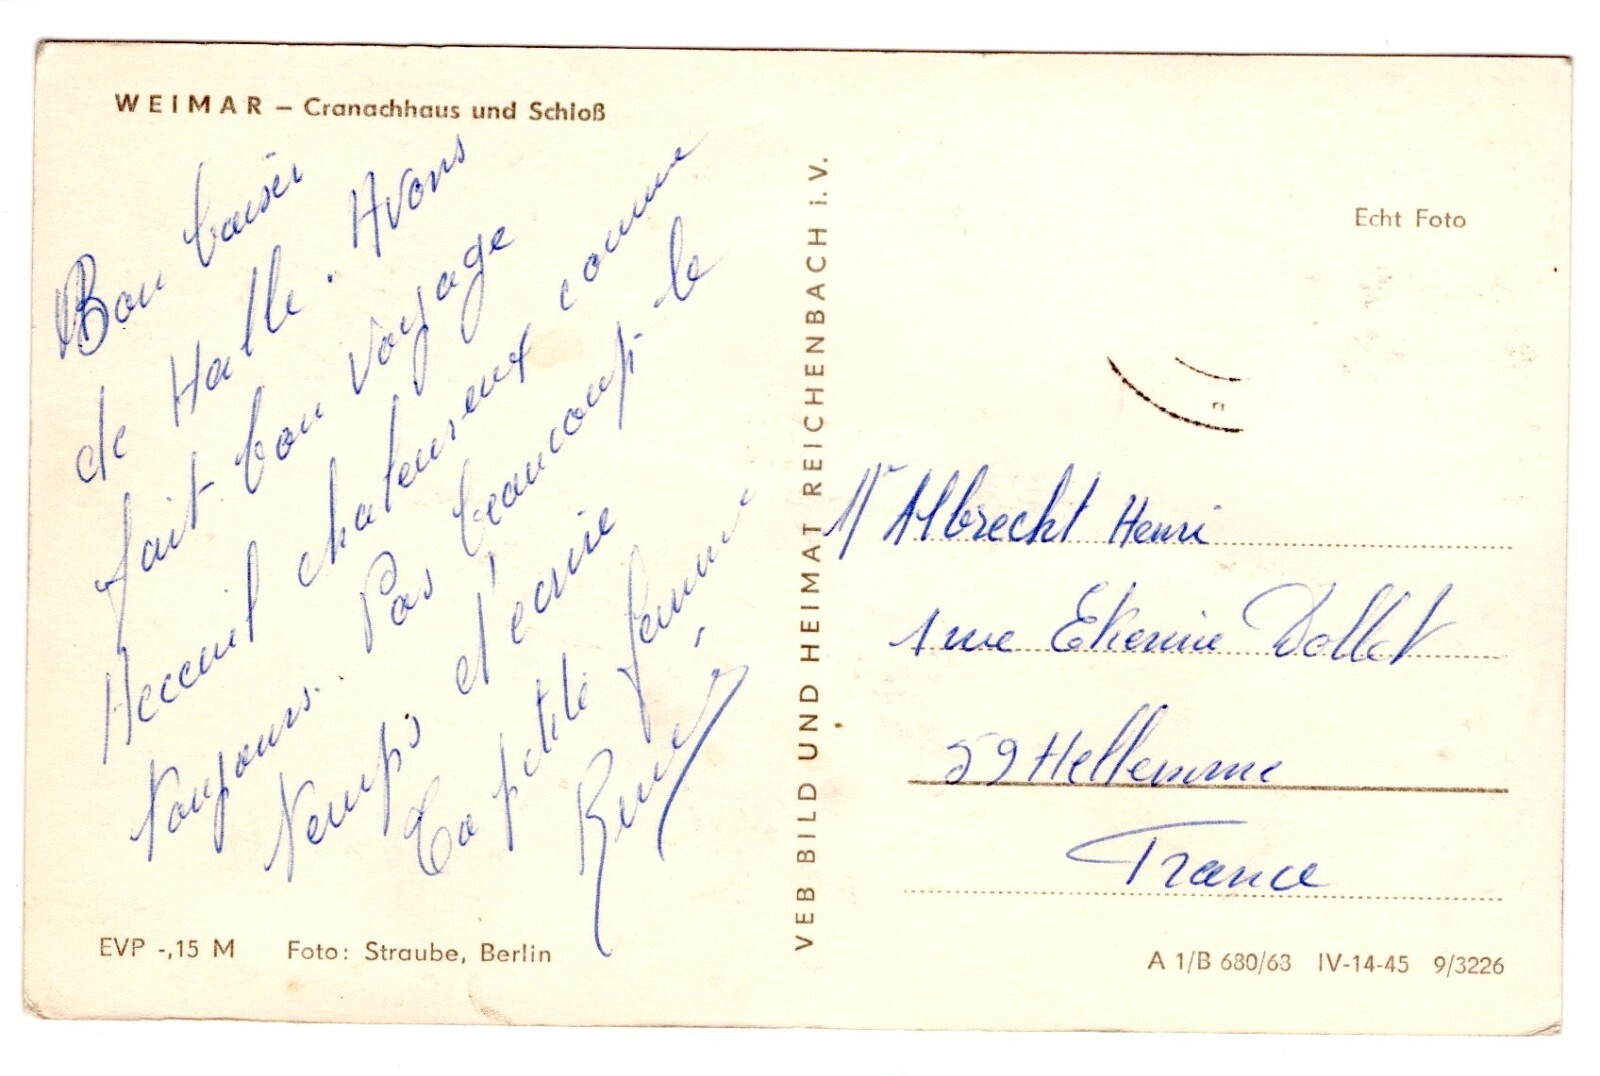 WEIMAR – Cranachhaus und Schloß
Bon baiser
de Halle. Avons
fait bon voyage
Acceuil chaleureux comme
toujours. Pas beaucoup le
temps d'ecrire
Ta petite femme
VEB BILD UND HEIMAT REICHENBACH i. V.
Echt Foto
Mr Albrecht Henri
1 rue Etienne Dollet
59 Hellemme
France
EVP -,15 M Foto: Straube, Berlin
A 1/B 680/63 IV-14-45 9/3226